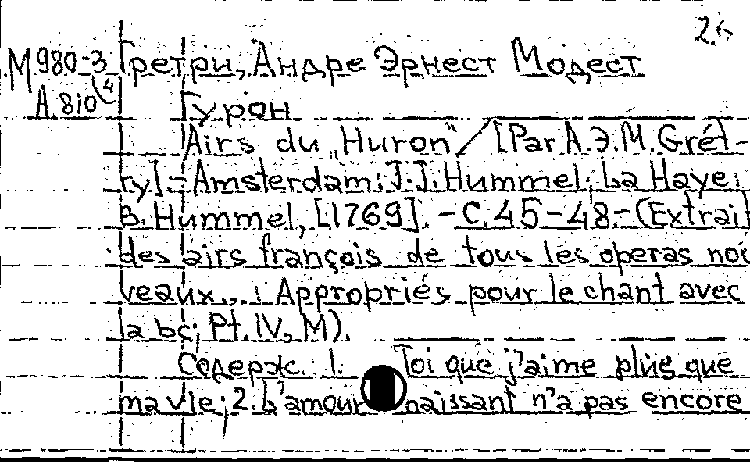 26
М 980-3 Гретри, Андре Эрнест Модест
А.810(4
Гурон
Airs du „Huron“ / [Par A.Э.M.Grét-
ry].-Amsterdam: J.J.Hummel; La Haye:
B. Hummel, [1769]. -С.45-48.-(Extrait
des airs français de tous les operas nou
veaux... Appropriés pour le chant avec
la bc; Pt. IV, M).
Содерж. 1. Toi que j'aime plus que
ma vie; 2. L'amour naissant n'a pas encore